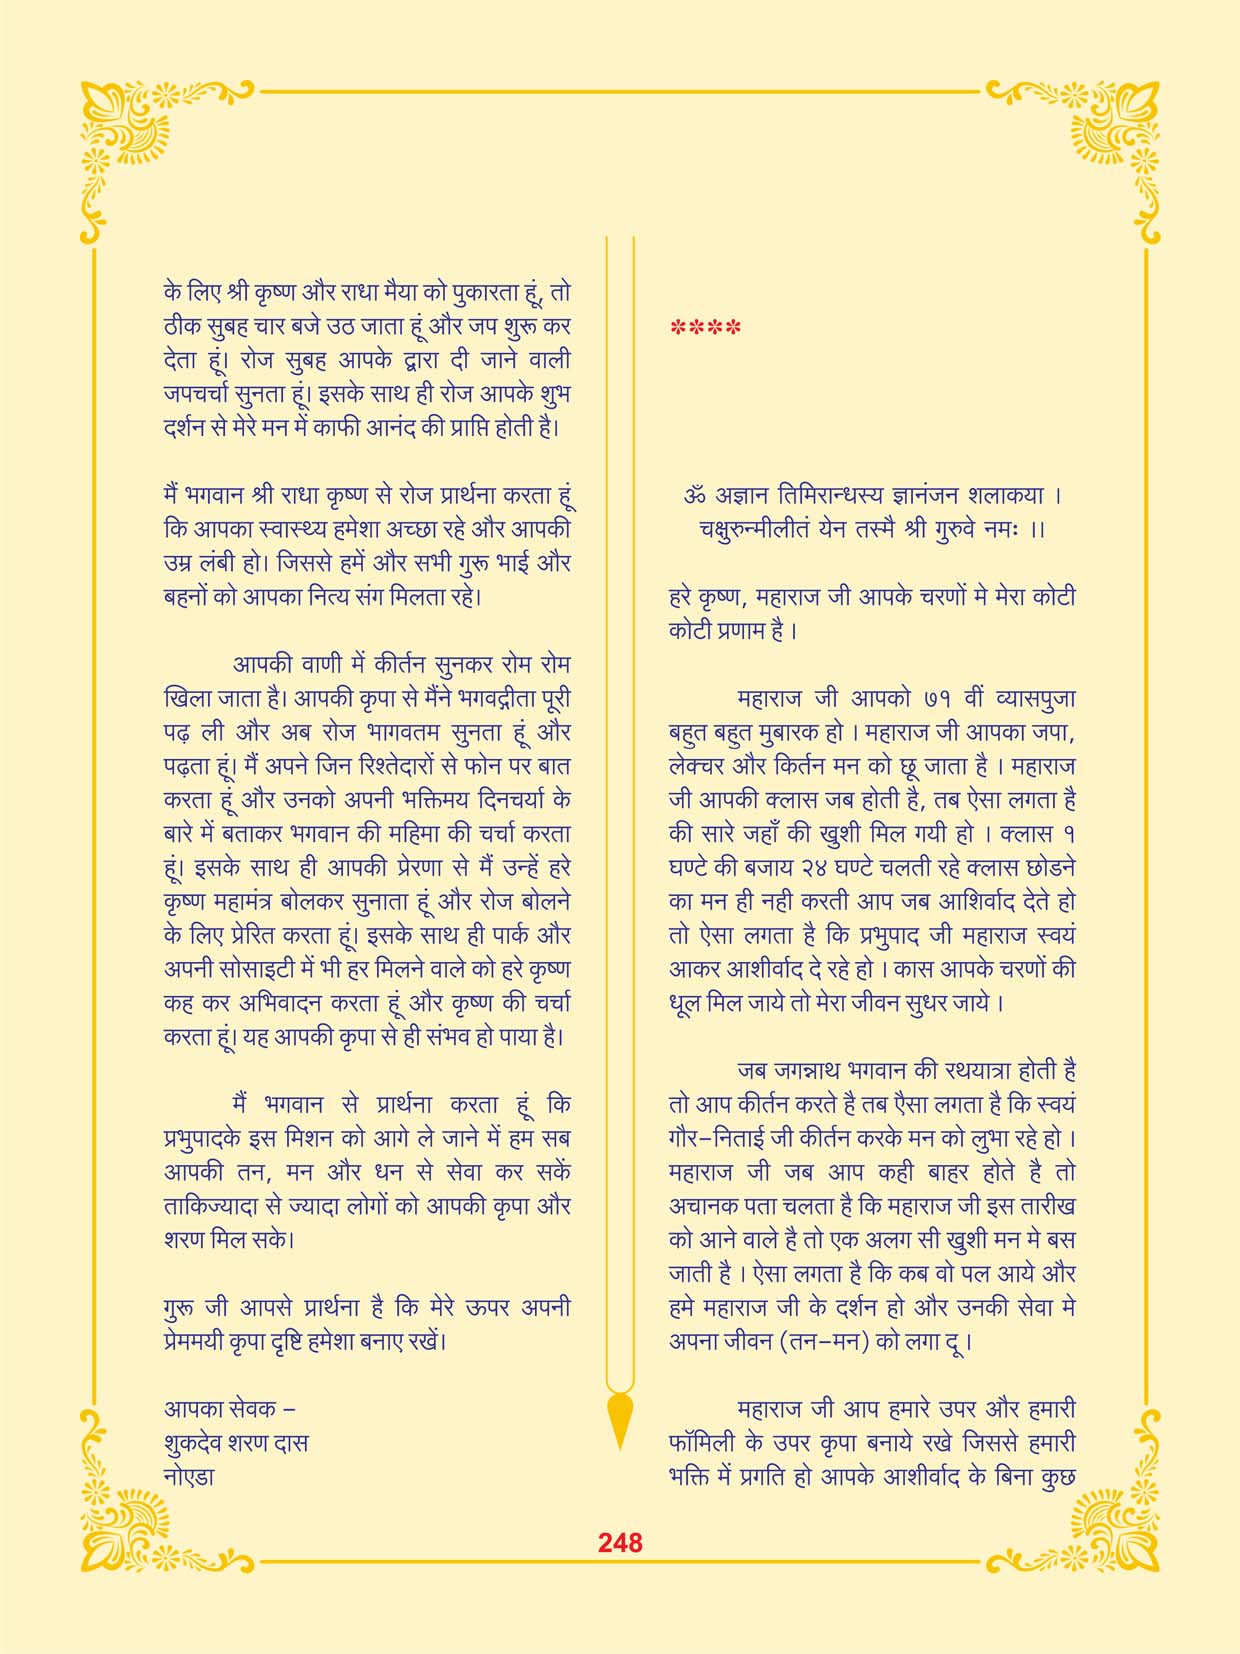 के लिए श्री कृष्ण और राधा मैया को पुकारता हूं, तो
ठीक सुबह चार बजे उठ जाता हूं और जप शुरू कर
देता हूं। रोज सुबह आपके द्वारा दी जाने वाली
जपचर्चा सुनता हूं। इसके साथ ही रोज आपके शुभ
दर्शन से मेरे मन में काफी आनंद की प्राप्ति होती है।
मैं भगवान श्री राधा कृष्ण से रोज प्रार्थना करता हूं
कि आपका स्वास्थ्य हमेशा अच्छा रहे और आपकी
उम्र लंबी हो। जिससे हमें और सभी गुरू भाई और
बहनों को आपका नित्य संग मिलता रहे।
आपकी वाणी में कीर्तन सुनकर रोम रोम
खिला जाता है। आपकी कृपा से मैंने भगवद्गीता पूरी
पढ़ ली और अब रोज भागवतम सुनता हूं और
पढ़ता हूं। मैं अपने जिन रिश्तेदारों से फोन पर बात
करता हूं और उनको अपनी भक्तिमय दिनचर्या के
बारे में बताकर भगवान की महिमा की चर्चा करता
हूं। इसके साथ ही आपकी प्रेरणा से मैं उन्हें हरे
कृष्ण महामंत्र बोलकर सुनाता हूं और रोज बोलने
के लिए प्रेरित करता हूं। इसके साथ ही पार्क और
अपनी सोसाइटी में भी हर मिलने वाले को हरे कृष्ण
कह कर अभिवादन करता हूं और कृष्ण की चर्चा
करता हूं। यह आपकी कृपा से ही संभव हो पाया है।
मैं भगवान से प्रार्थना करता हूं कि
प्रभुपादके इस मिशन को आगे ले जाने में हम सब
आपकी तन, मन और धन से सेवा कर सकें
ताकिज्यादा से ज्यादा लोगों को आपकी कृपा और
शरण मिल सके।
गुरू जी आपसे प्रार्थना है कि मेरे ऊपर अपनी
प्रेममयी कृपा दृष्टि हमेशा बनाए रखें।
आपका सेवक –
शुकदेव शरण दास
नोएडा
****
ॐ अज्ञान तिमिरान्धस्य ज्ञानंजन शलाकया ।
चक्षुरुन्मीलीतं येन तस्मै श्री गुरुवे नमः ।।
हरे कृष्ण, महाराज जी आपके चरणों मे मेरा कोटी
कोटी प्रणाम है ।
महाराज जी आपको ७१ वीं व्यासपुजा
बहुत बहुत मुबारक हो । महाराज जी आपका जपा,
लेक्चर और किर्तन मन को छू जाता है । महाराज
जी आपकी क्लास जब होती है, तब ऐसा लगता है
की सारे जहाँ की खुशी मिल गयी हो । क्लास १
घण्टे की बजाय २४ घण्टे चलती रहे क्लास छोडने
का मन ही नही करती आप जब आशिर्वाद देते हो
तो ऐसा लगता है कि प्रभुपाद जी महाराज स्वयं
आकर आशीर्वाद दे रहे हो । कास आपके चरणों की
धूल मिल जाये तो मेरा जीवन सुधर जाये ।
जब जगन्नाथ भगवान की रथयात्रा होती है
तो आप कीर्तन करते है तब एैसा लगता है कि स्वयं
गौर–निताई जी कीर्तन करके मन को लुभा रहे हो ।
महाराज जी जब आप कही बाहर होते है तो
अचानक पता चलता है कि महाराज जी इस तारीख
को आने वाले है तो एक अलग सी खुशी मन मे बस
जाती है । ऐसा लगता है कि कब वो पल आये और
हमे महाराज जी के दर्शन हो और उनकी सेवा मे
अपना जीवन (तन–मन) को लगा दू ।
महाराज जी आप हमारे उपर और हमारी
फॉमिली के उपर कृपा बनाये रखे जिससे हमारी
भक्ति में प्रगति हो आपके आशीर्वाद के बिना कुछ
248